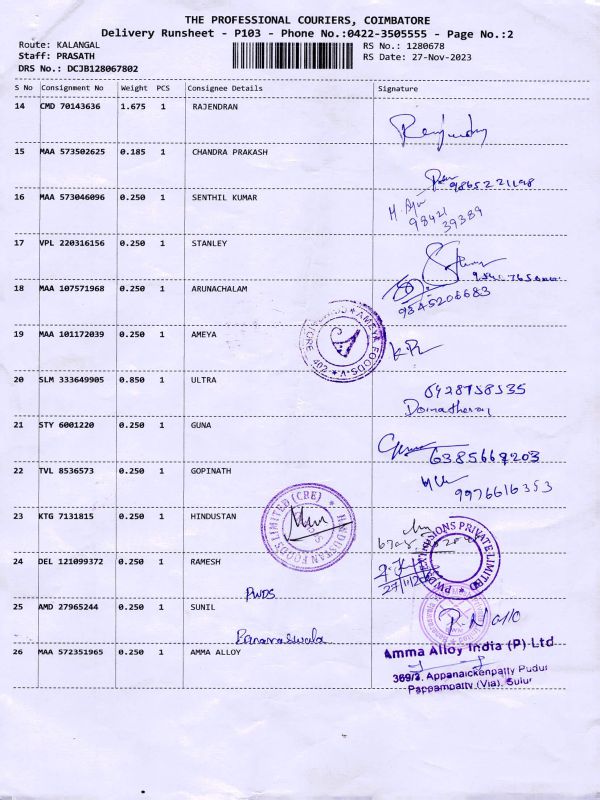 THE PROFESSIONAL COURIERS, COIMBATORE
Delivery Runsheet - P103 - Phone No.:0422-3505555 - Page No.:2
Route: KALANGAL
RS No.: 1280678
Staff: PRASATH
RS Date: 27-Nov-2023
DRS No.: DCJB128067802
S No Consignment No Weight PCS Consignee Details Signature
14 CMD 70143636 1.675 1 RAJENDRAN
15 MAA 573502625 0.185 1 CHANDRA PRAKASH
9865221198
16 MAA 573046096 0.250 1 SENTHIL KUMAR
98421
39389
17 VPL 220316156 0.250 1 STANLEY
18 MAA 107571968 0.250 1 ARUNACHALAM
9845206683
19 MAA 101172039 0.250 1 AMEYA
AMEYA FOODS
20 SLM 333649905 0.850 1 ULTRA
21 STY 6001220 0.250 1 GUNA
22 TVL 8536573 0.250 1 GOPINATH
9976616353
23 KTG 7131815 0.250 1 HINDUSTAN
HINDUSTAN FOODS LIMITED (CBE)
24 DEL 121099372 0.250 1 RAMESH
PWDS
25 AMD 27965244 0.250 1 SUNIL
26 MAA 572351965 0.250 1 AMMA ALLOY
Amma Alloy India (P) Ltd
369/3, Appanaickenpatty Pudur
Pappampatty (Via), Sulur